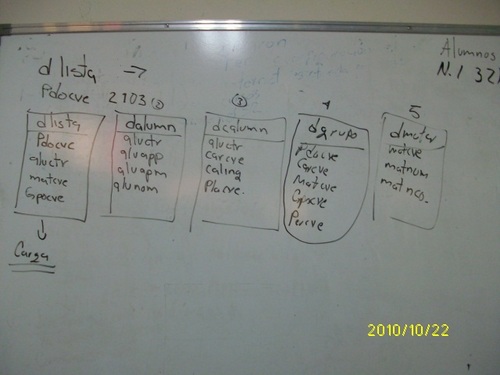 Alumnos
dlista ⇒
Pdocve 2103 ②
③ 4 5
dlista
Pdocve
aluctr
matcve
Gpocve
Carga
dalumn
aluctr
aluapp
aluapm
alunom
dcalumn
aluctr
carcve
caling
Placve.
dgrupo
Pdocve
Carcve
Matcve
Gpocve
Percve
matcve
matnom
matnco.
2010/10/22